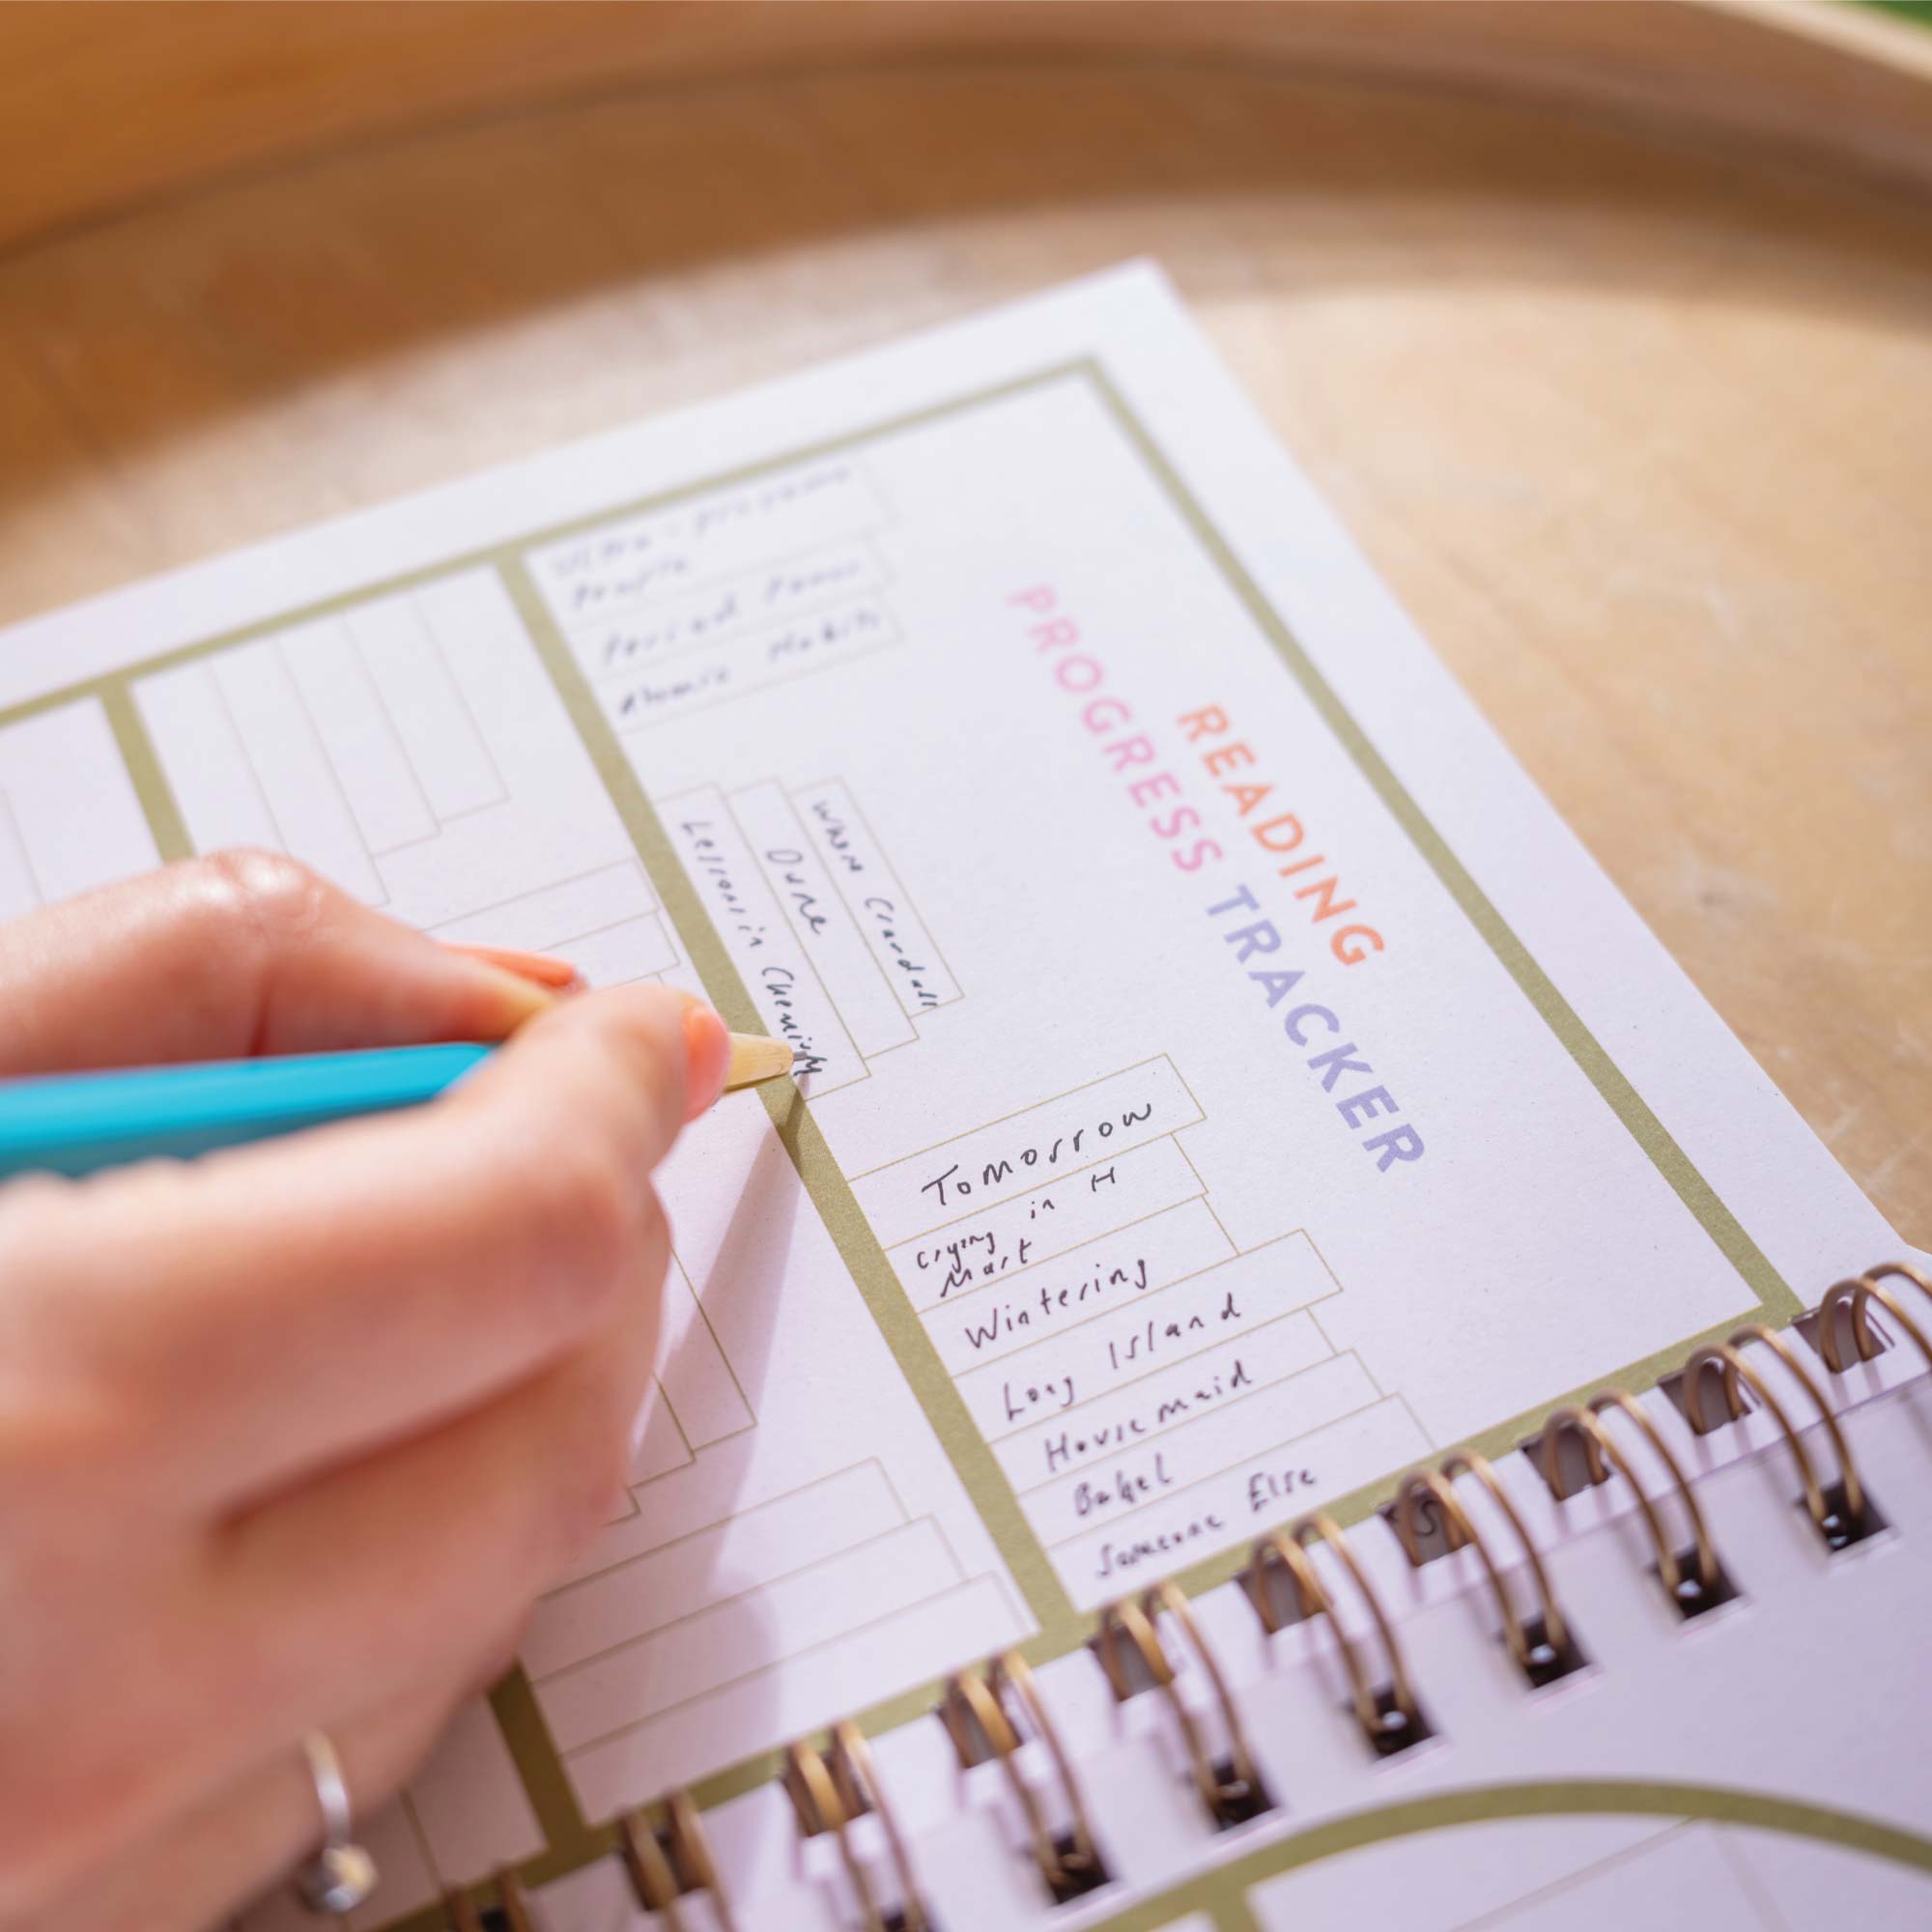 READING
PROGRESS TRACKER
Ultra-
People
Period Power
Atomic Habits
Lessons in Chemistry
Dune
Where Crawdads
Tomorrow
Crying in H
Mart
Wintering
Long Island
Housemaid
Babel
Someone Else